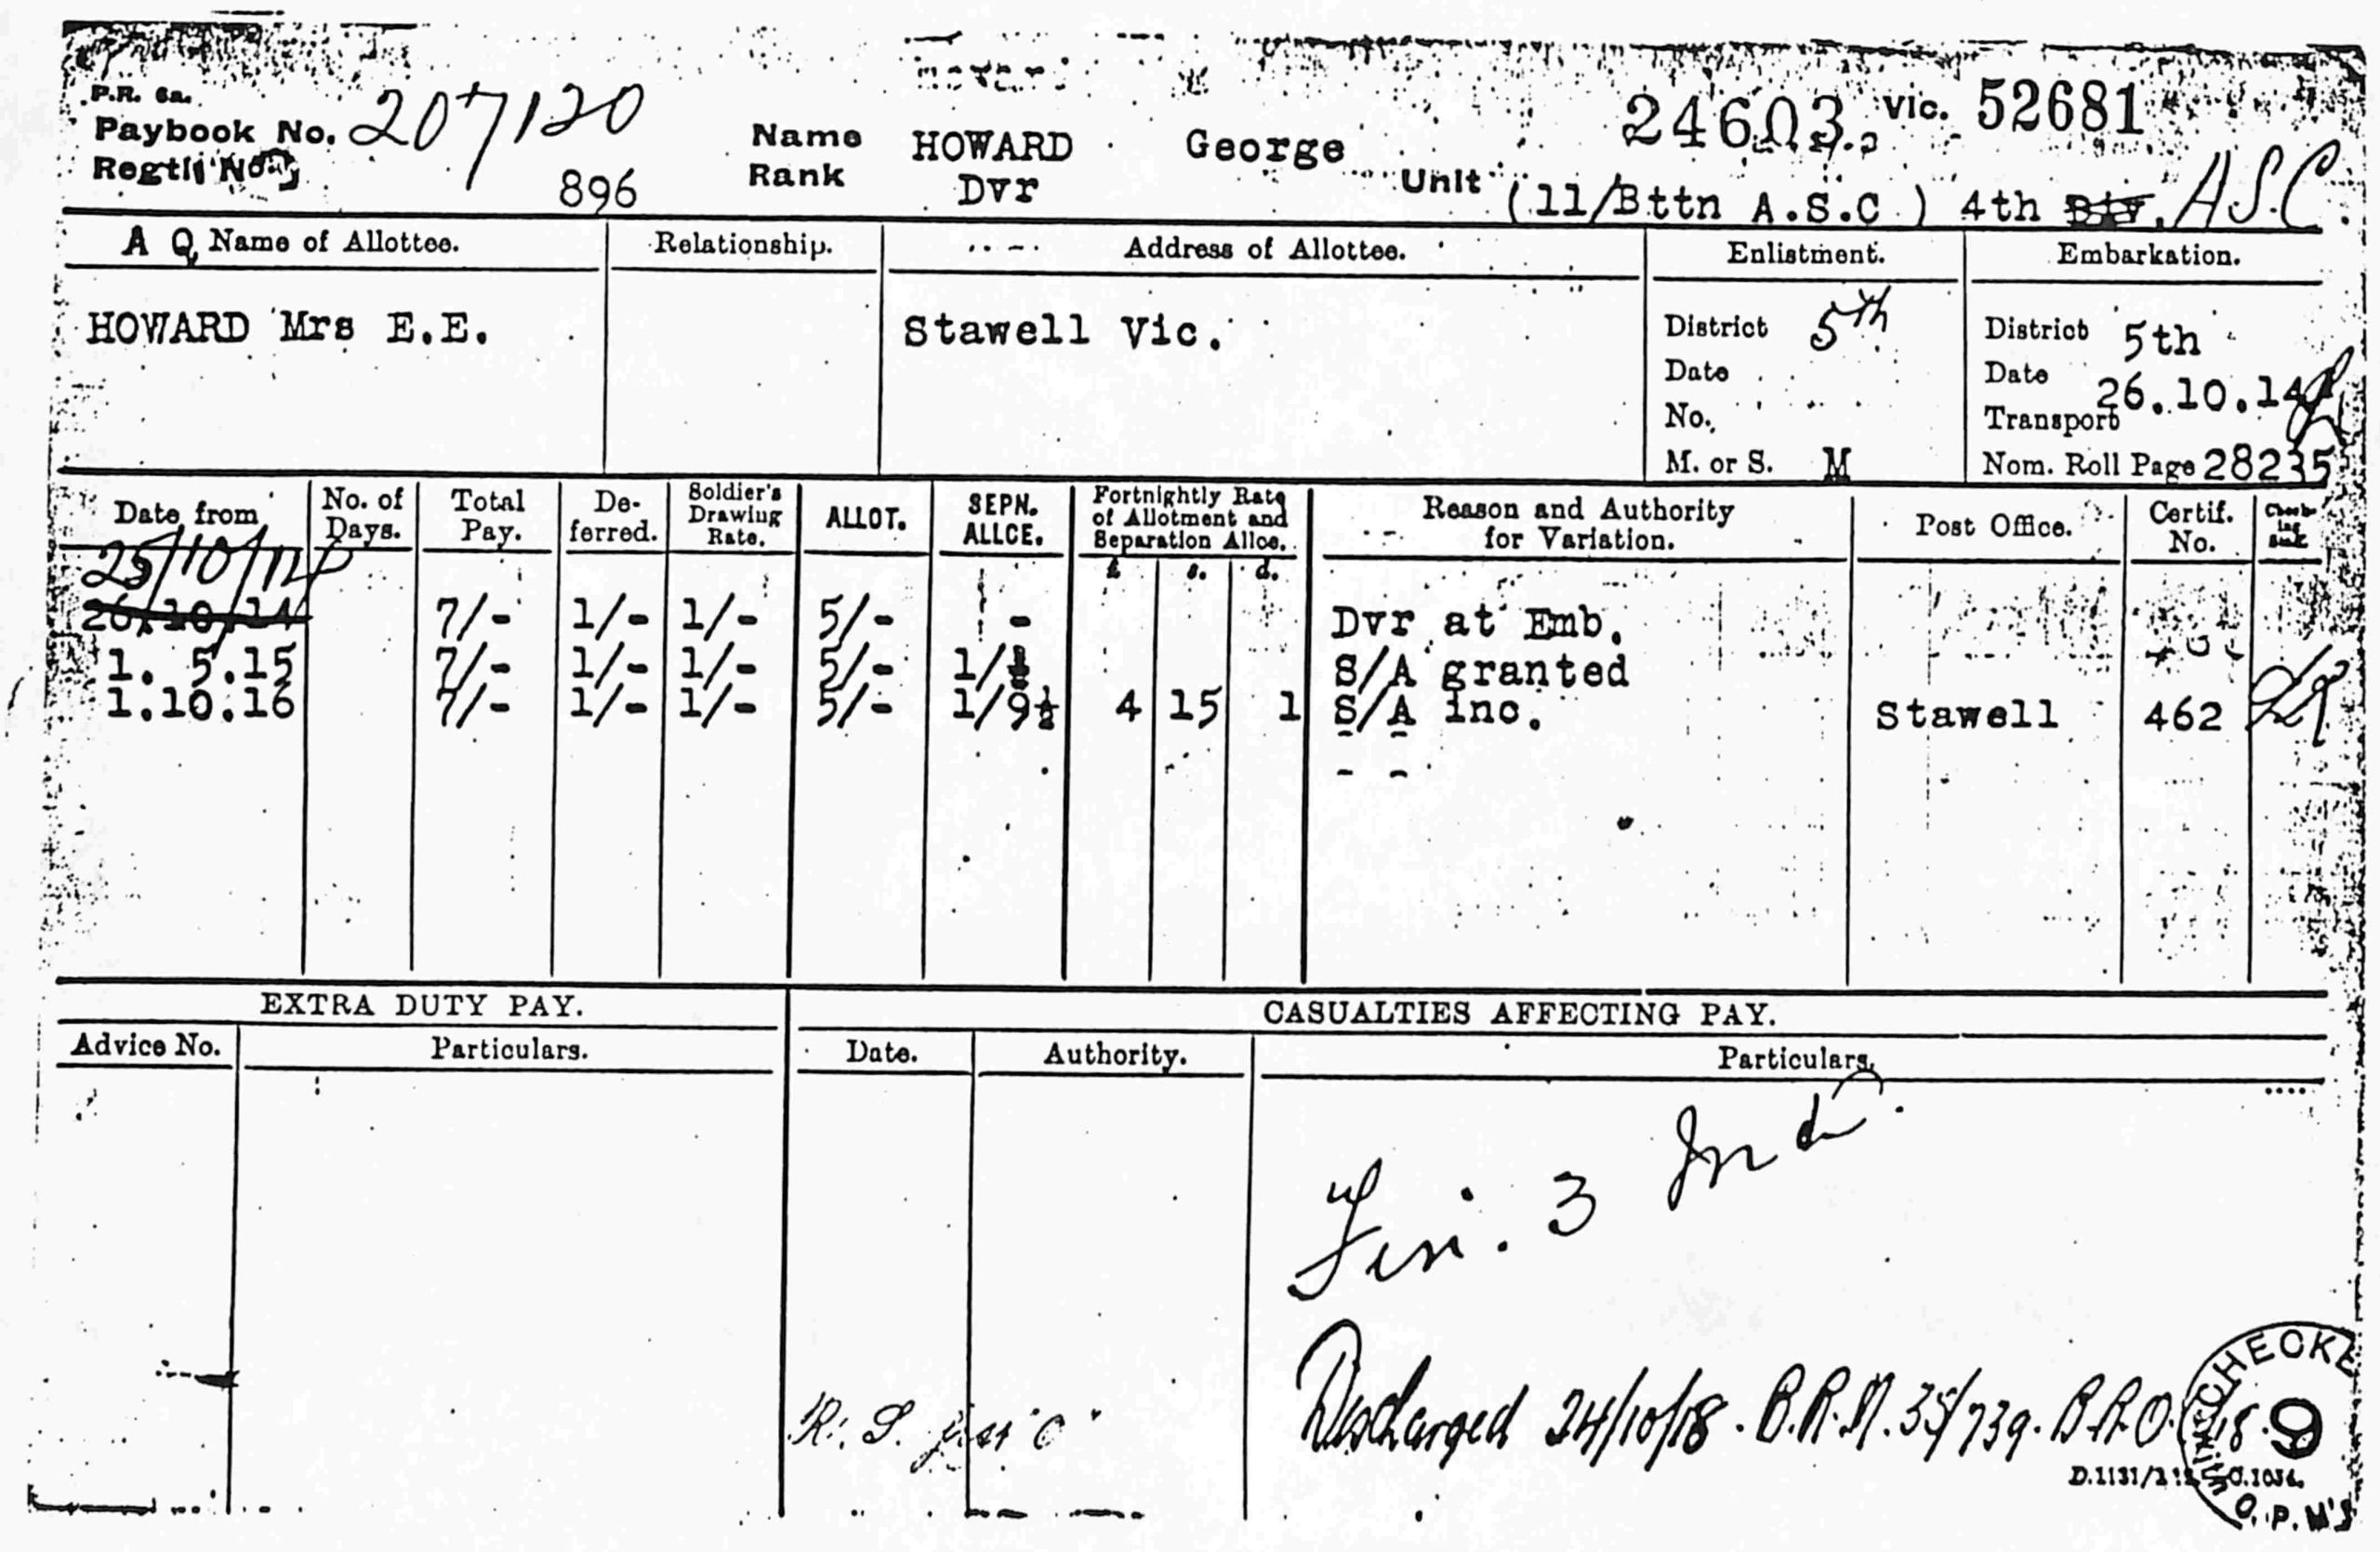 P.R. 6a.
Paybook No. 207120
Regtl No. 896
Name HOWARD George
Rank Dvr
24603 Vic. 52681
Unit (11/Bttn A.S.C ) 4th Div. A.S.C.
A Q Name of Allottee. Relationship. Address of Allottee. Enlistment. Embarkation.
HOWARD Mrs E.E. Stawell Vic.
District 5th District 5th
Date Date 26.10.14
No. Transport
M. or S. M Nom. Roll Page 28235
Date from No. of Days. Total Pay. De-ferred. Soldier's Drawing Rate. ALLOT. SEPN. ALLCE. Fortnightly Rate of Allotment and Separation Allce. Reason and Authority for Variation. Post Office. Certif. No.
£ s. d.
25/10/14
26.10.14 7/- 1/- 1/- 5/- - Dvr at Emb.
1. 5.15 7/- 1/- 1/- 5/- 1/ S/A granted
1.10.16 7/- 1/- 1/- 5/- 1/9½ 4 15 1 S/A inc. Stawell 462
- -
- -
EXTRA DUTY PAY. CASUALTIES AFFECTING PAY.
Advice No. Particulars. Date. Authority. Particulars.
3
R. S.
Discharged 24/10/18. B.R.M. 35/739.
CHECKE
9
D.1131/
C.1034.
O.P.M's